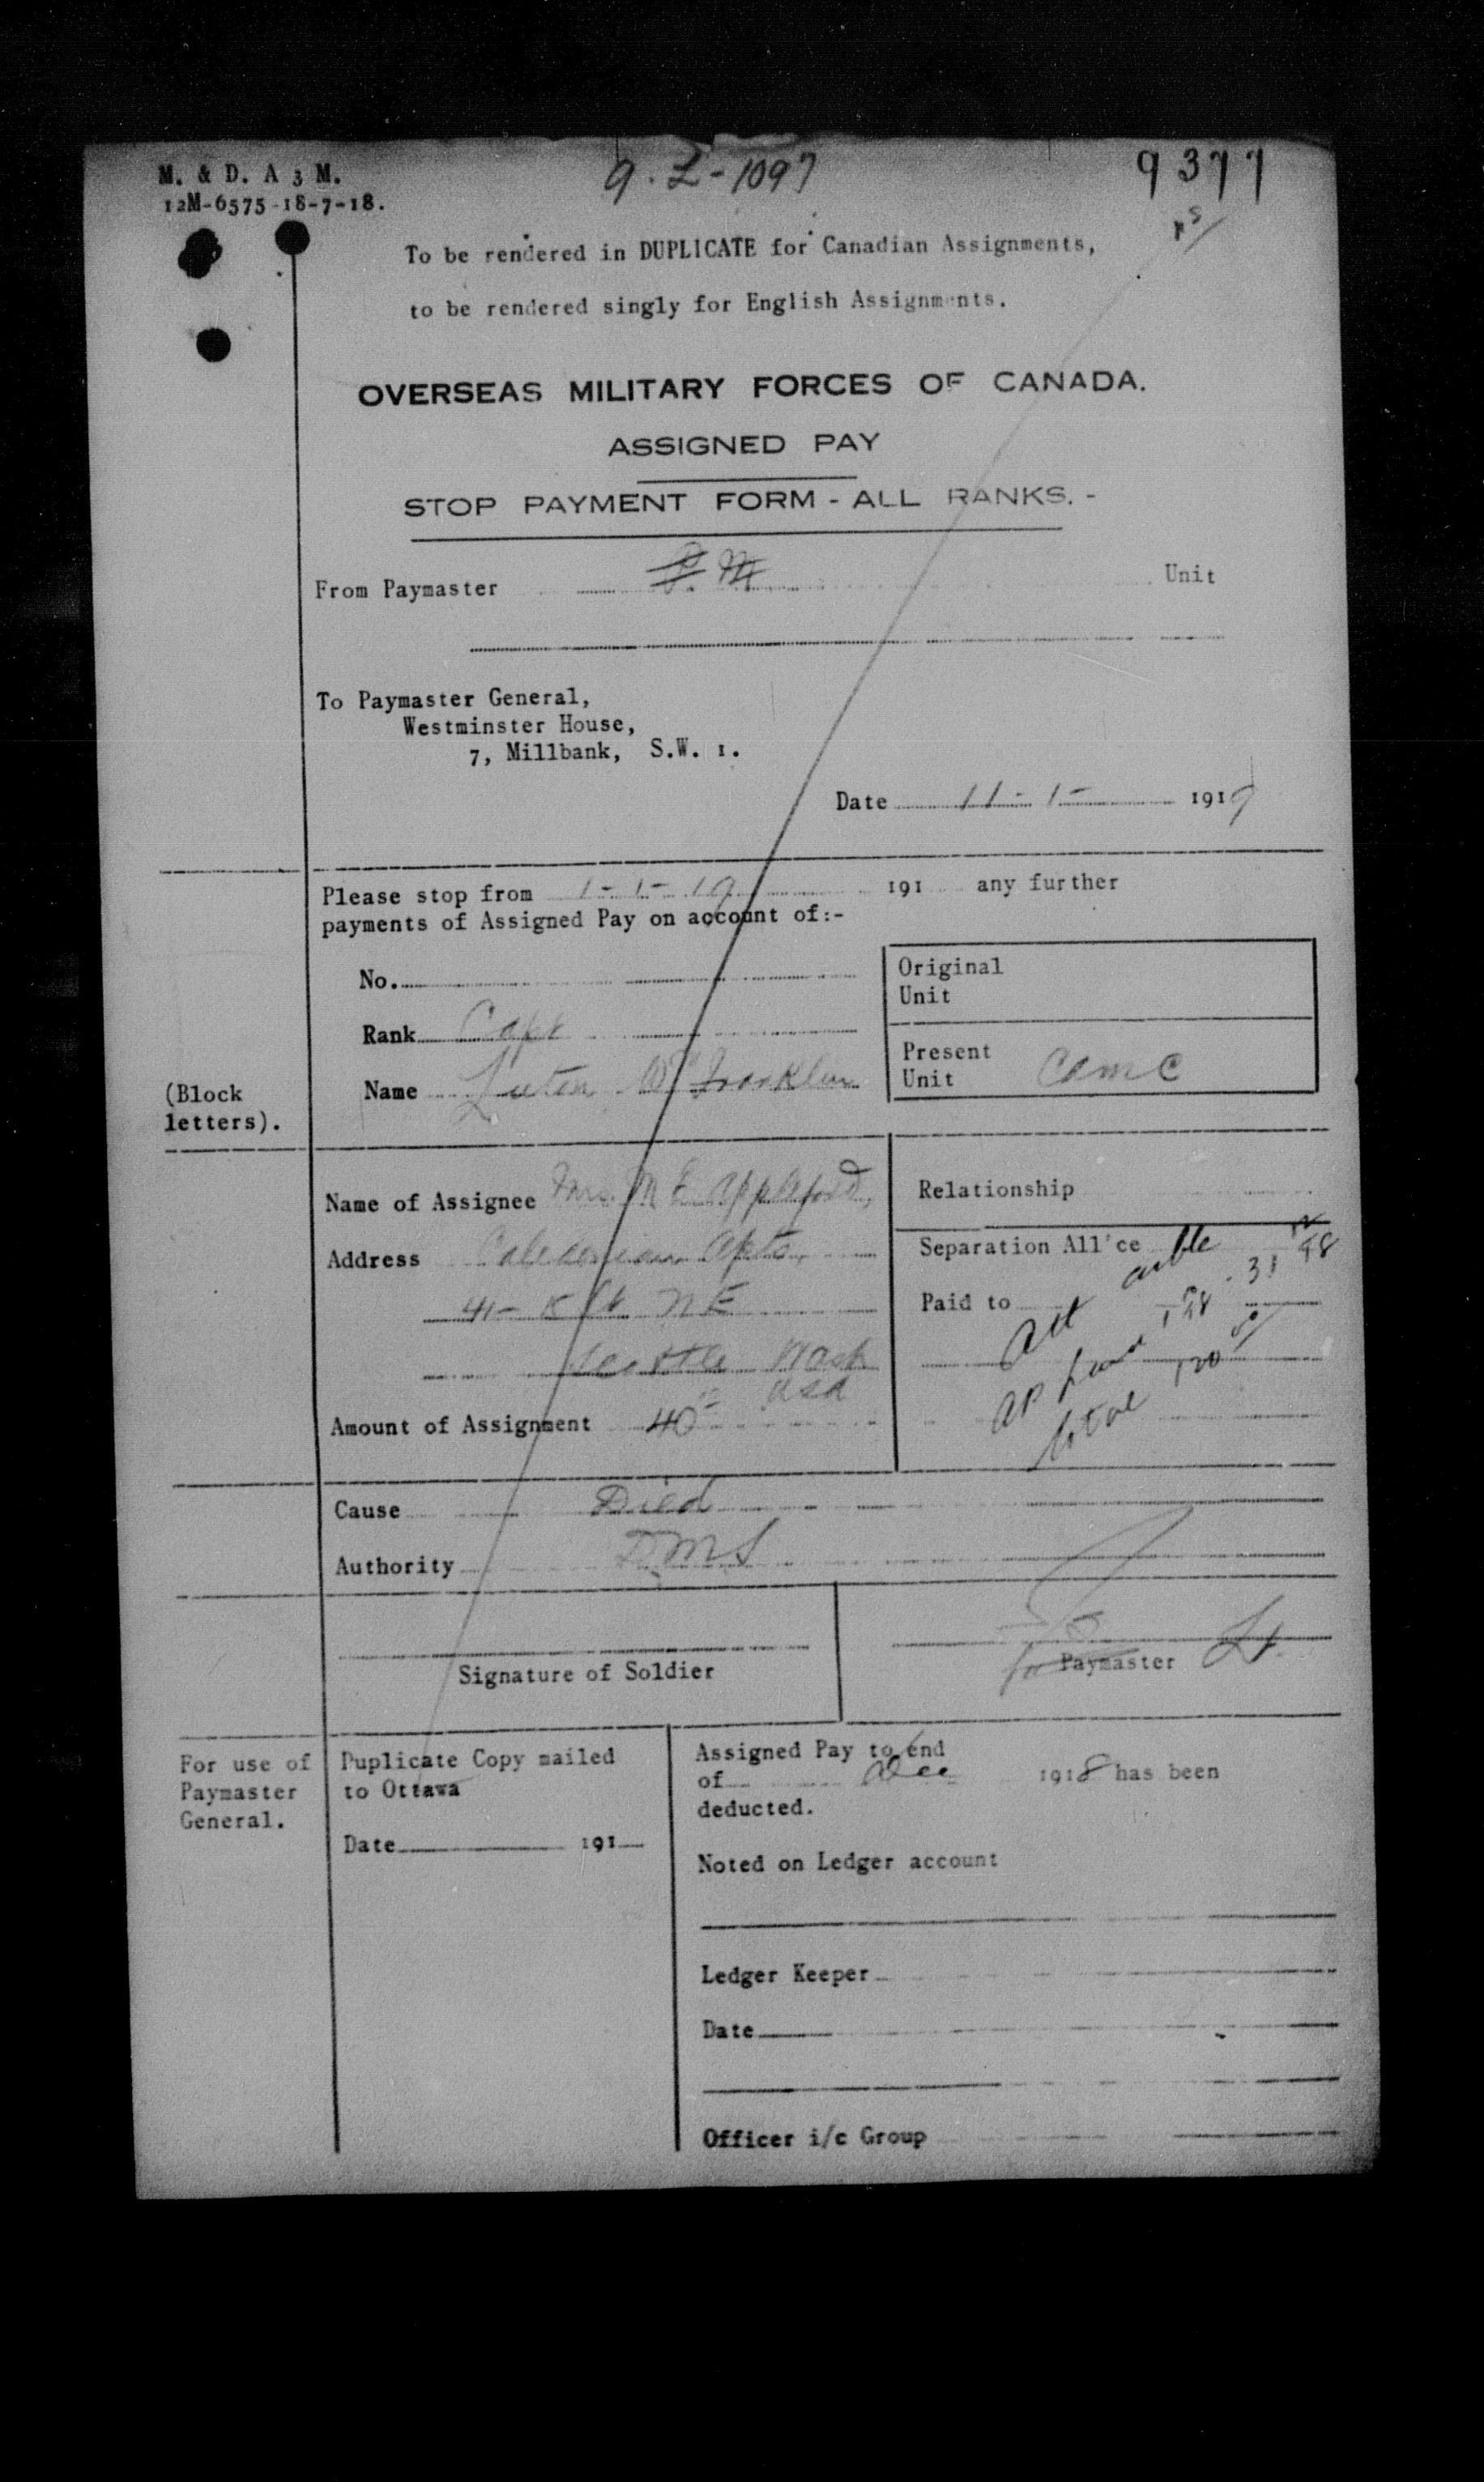 M. & D. A 3 M.
12M-6575-18-7-18.
9. L-1097
9377
To be rendered in DUPLICATE for Canadian Assignments,
to be rendered singly for English Assignments.
OVERSEAS MILITARY FORCES OF CANADA.
ASSIGNED PAY
STOP PAYMENT FORM - ALL RANKS. -
From Paymaster Unit
To Paymaster General,
Westminster House,
7, Millbank, S.W. 1.
Date 11-1- 1919
Please stop from 1-1-19 191 any further
payments of Assigned Pay on account of:-
No.
Rank Capt
(Block letters).
Name Luton W Franklin
Original Unit
Present Unit CAMC
Name of Assignee Mrs. M E Appleford,
Address Caledonian Apts.
41- St NE
Seattle Wash
USA
Amount of Assignment 40
Relationship
Separation All'ce
Paid to
total
Cause Died
Authority DMS
Signature of Soldier
for Paymaster Lt.
For use of Paymaster General.
Duplicate Copy mailed
to Ottawa
Date 191
Assigned Pay to end
of Dec 1918 has been
deducted.
Noted on Ledger account
Ledger Keeper
Date
Officer i/c Group